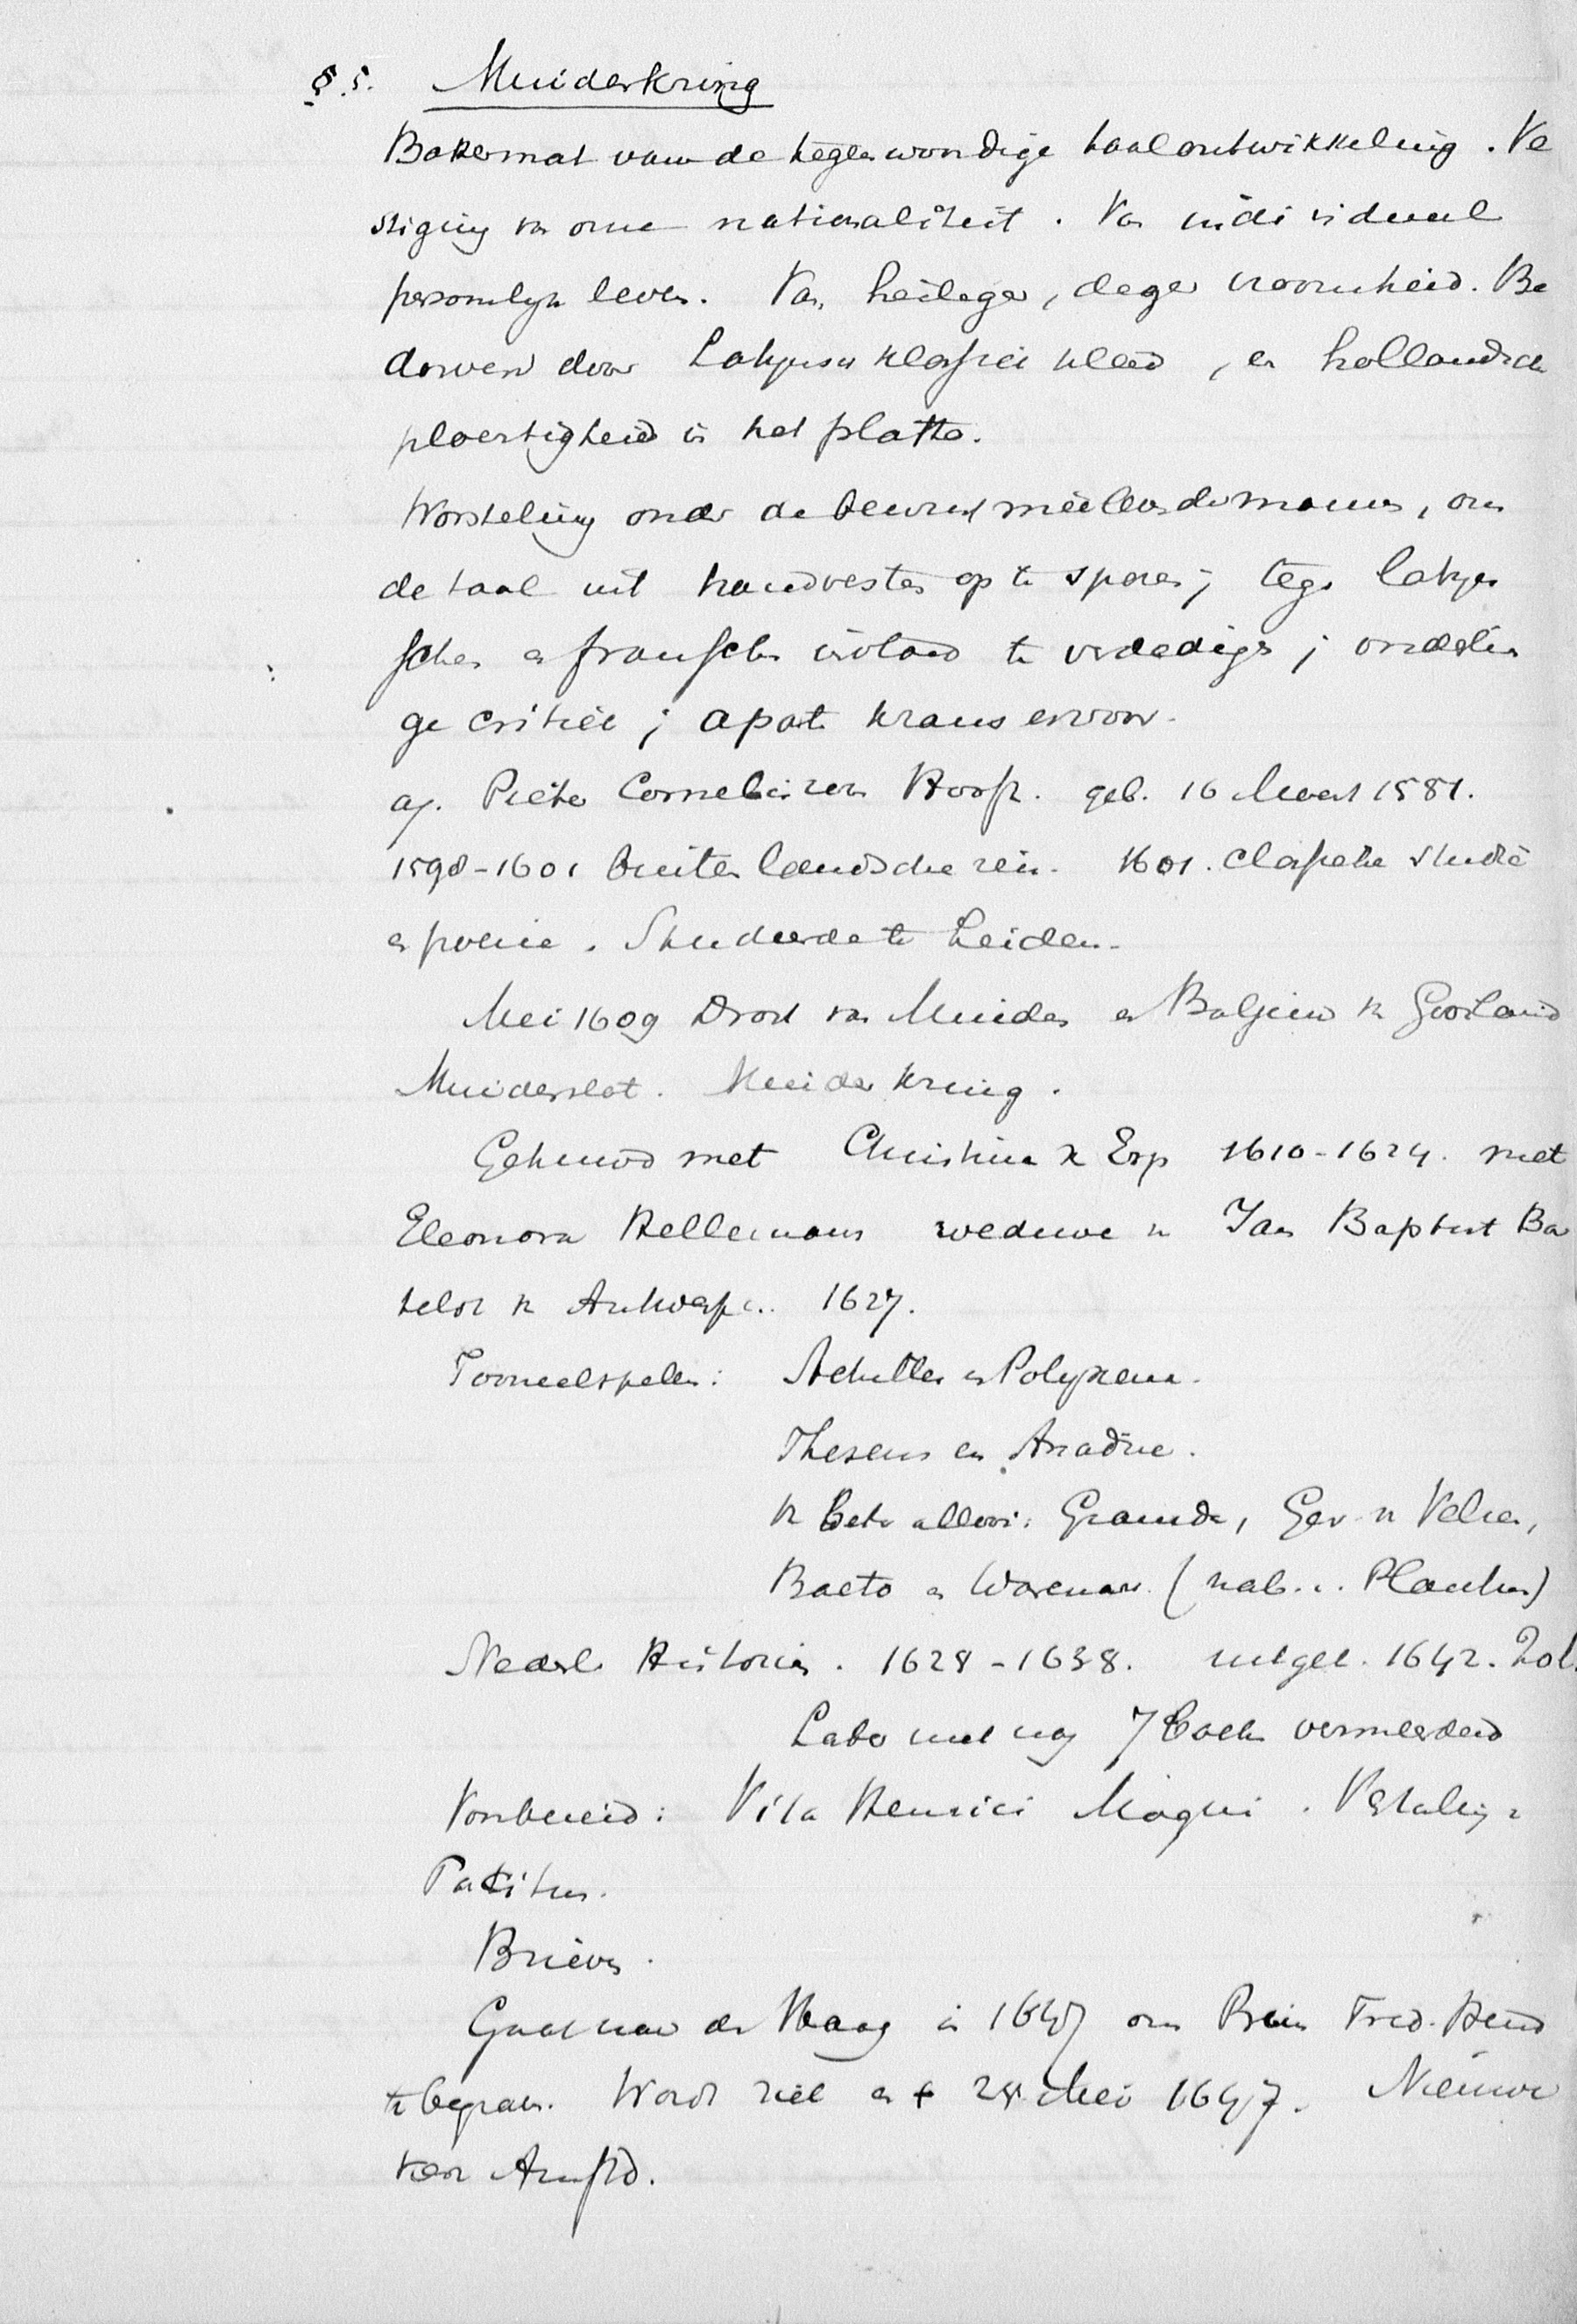 §.5. Muiderkring
Bakermat van de tegenwoordige taalontwikkeling. Ve
stiging van onze nationaliteit. Van individueel
persoonlijk leven. Van heilige, dege vroomheid. Be
dorven door Latijnsch klassiek kleed, en hollandsche
ploertigheid in het platte.
Worsteling onder de Amsterdammers, om
de taal uit handvesten op te sporen; tegen latijn
schen en franschen invloed te verdedigen; onderlin
ge critiek; aparte krans ervoor.
a). Pieter Corneliszoon Hooft. geb. 16 Maart 1581.
1598-1601 buitenlandsche reis. 1601. classieke studie
en poëzie. Studeerde te Leiden.
Mei 1609 Drost van Muiden en Baljuw v. Gooiland
Muiderslot. Muiderkring.
Gehuwd met Christina v. Erp 1610-1624. met
Eleonora Hellemans weduwe v. Jan Baptist Ba
telor v. Antwerpen. 1627.
Tooneelspelen: Achilles en Polyxena.
Theseus en Ariadne.
v. Beter allooi: Granida, Ger. v. Velzen,
Baeto en Warenar. (nab... Plautus)
Nederl. Historien. 1628-1638. uitgeg. 1642.
Later met nog 7 boeken vermeerderd
Voorbereid: Vita Henrici Magni. Vertaling v
Tacitus.
Brieven.
Gaat naar den Haag in 1647 om Prins Fred. Hend
te begraven. Wordt ziek en † 21 Mei 1647. Nieuwe
kerk Amstd.